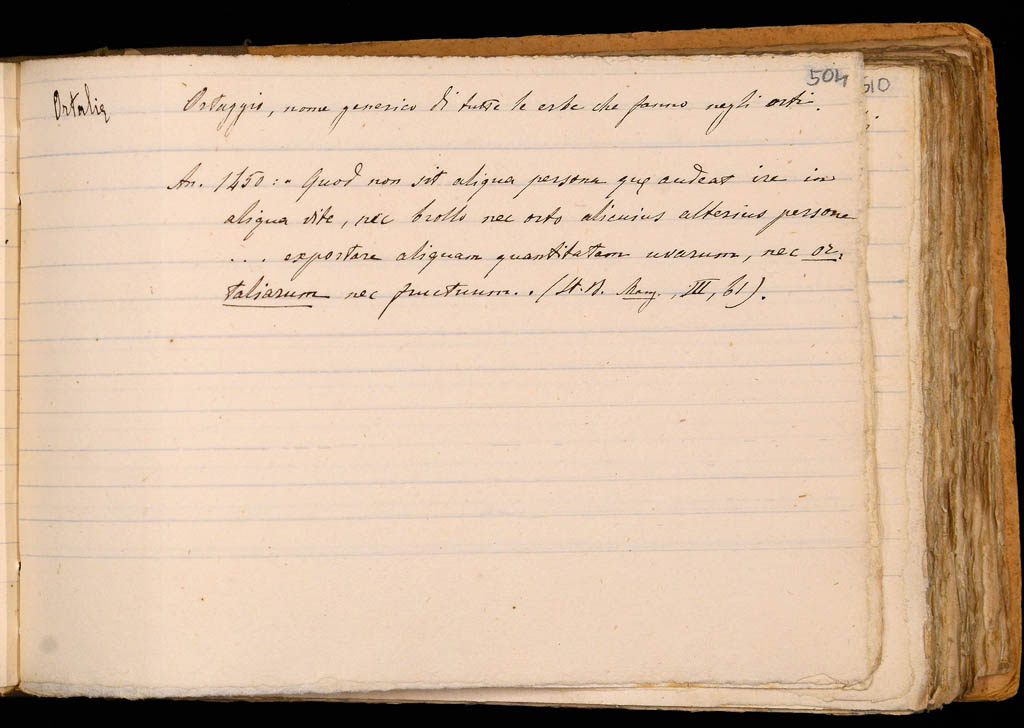 504
510
Ortalię
Ortaggio, nome generico di tutte le erbe che fanno negli orti.
An. 1450: " Quod non sit aliqua persona quę audeat ire in
aliqua vite, nec brollo nec orto alicuius alterius persone
... exportare aliquam quantitatem uvarum, nec or-
taliarum nec fructuum. (St. N. Mang., III, 61).